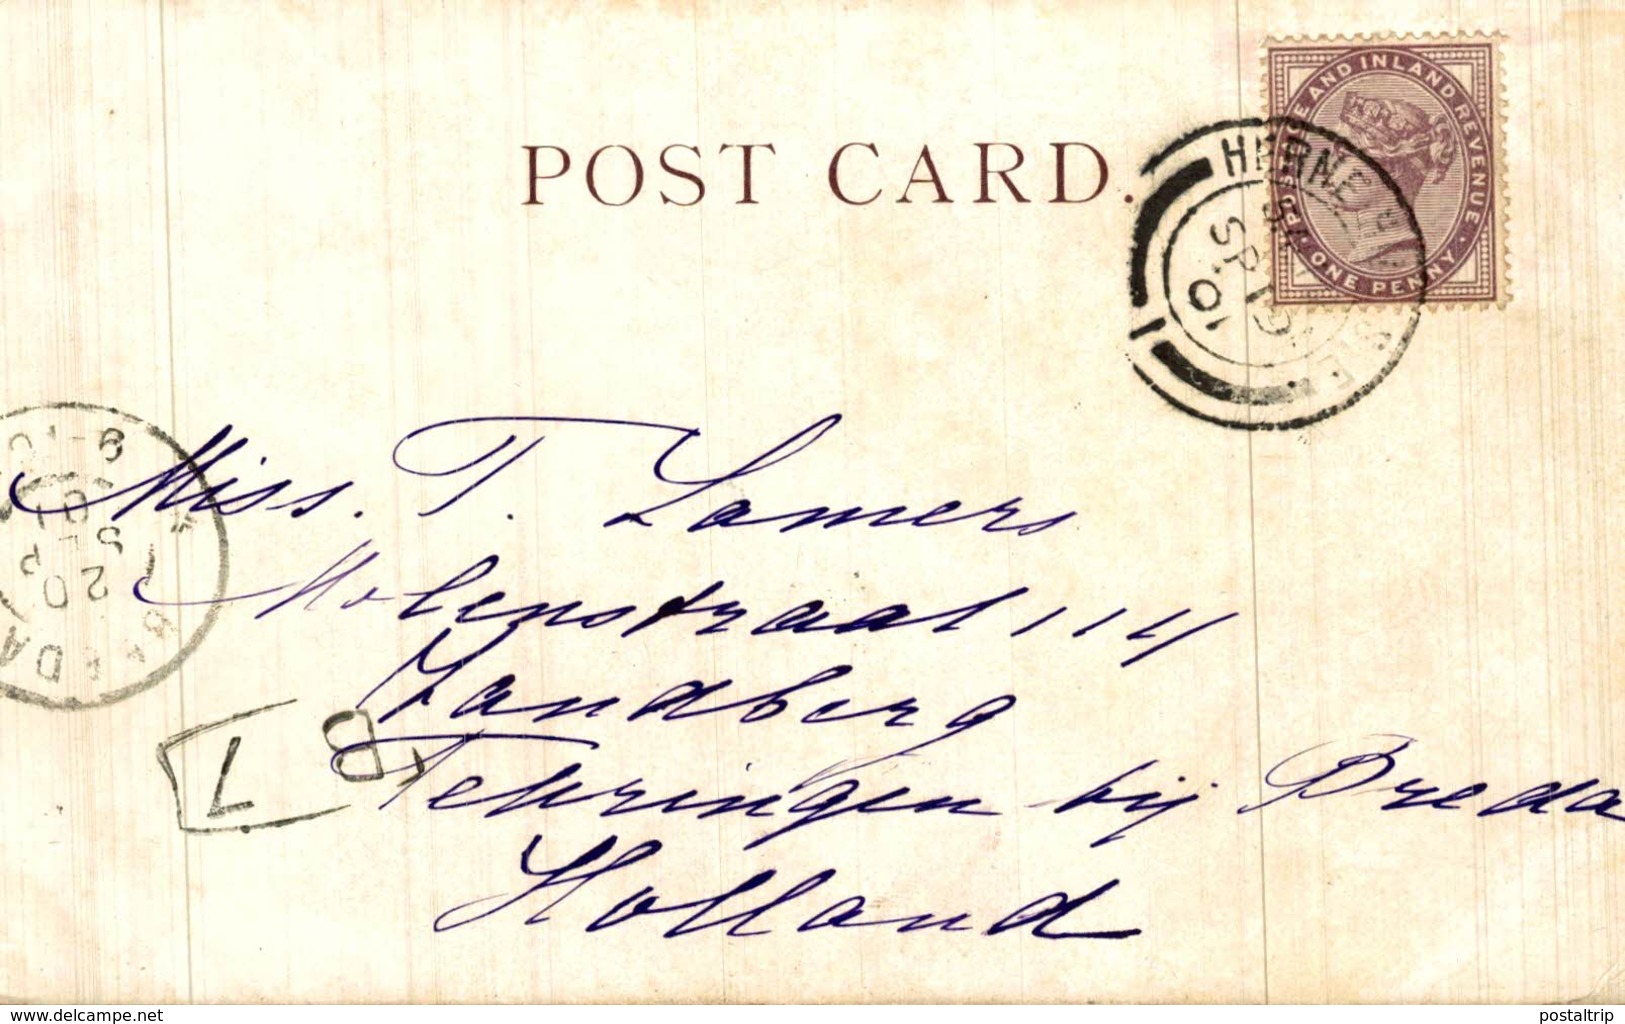 POSTAGE AND INLAND REVENUE.
ONE PENNY
POST CARD.
HERNE
SP 19
01
Miss. T. Lamers
Molenstraat 114
Zandberg
Teteringen bij Breda
Holland
20 SEP 01
BREDA
B 7
www.delcampe.net
postaltrip